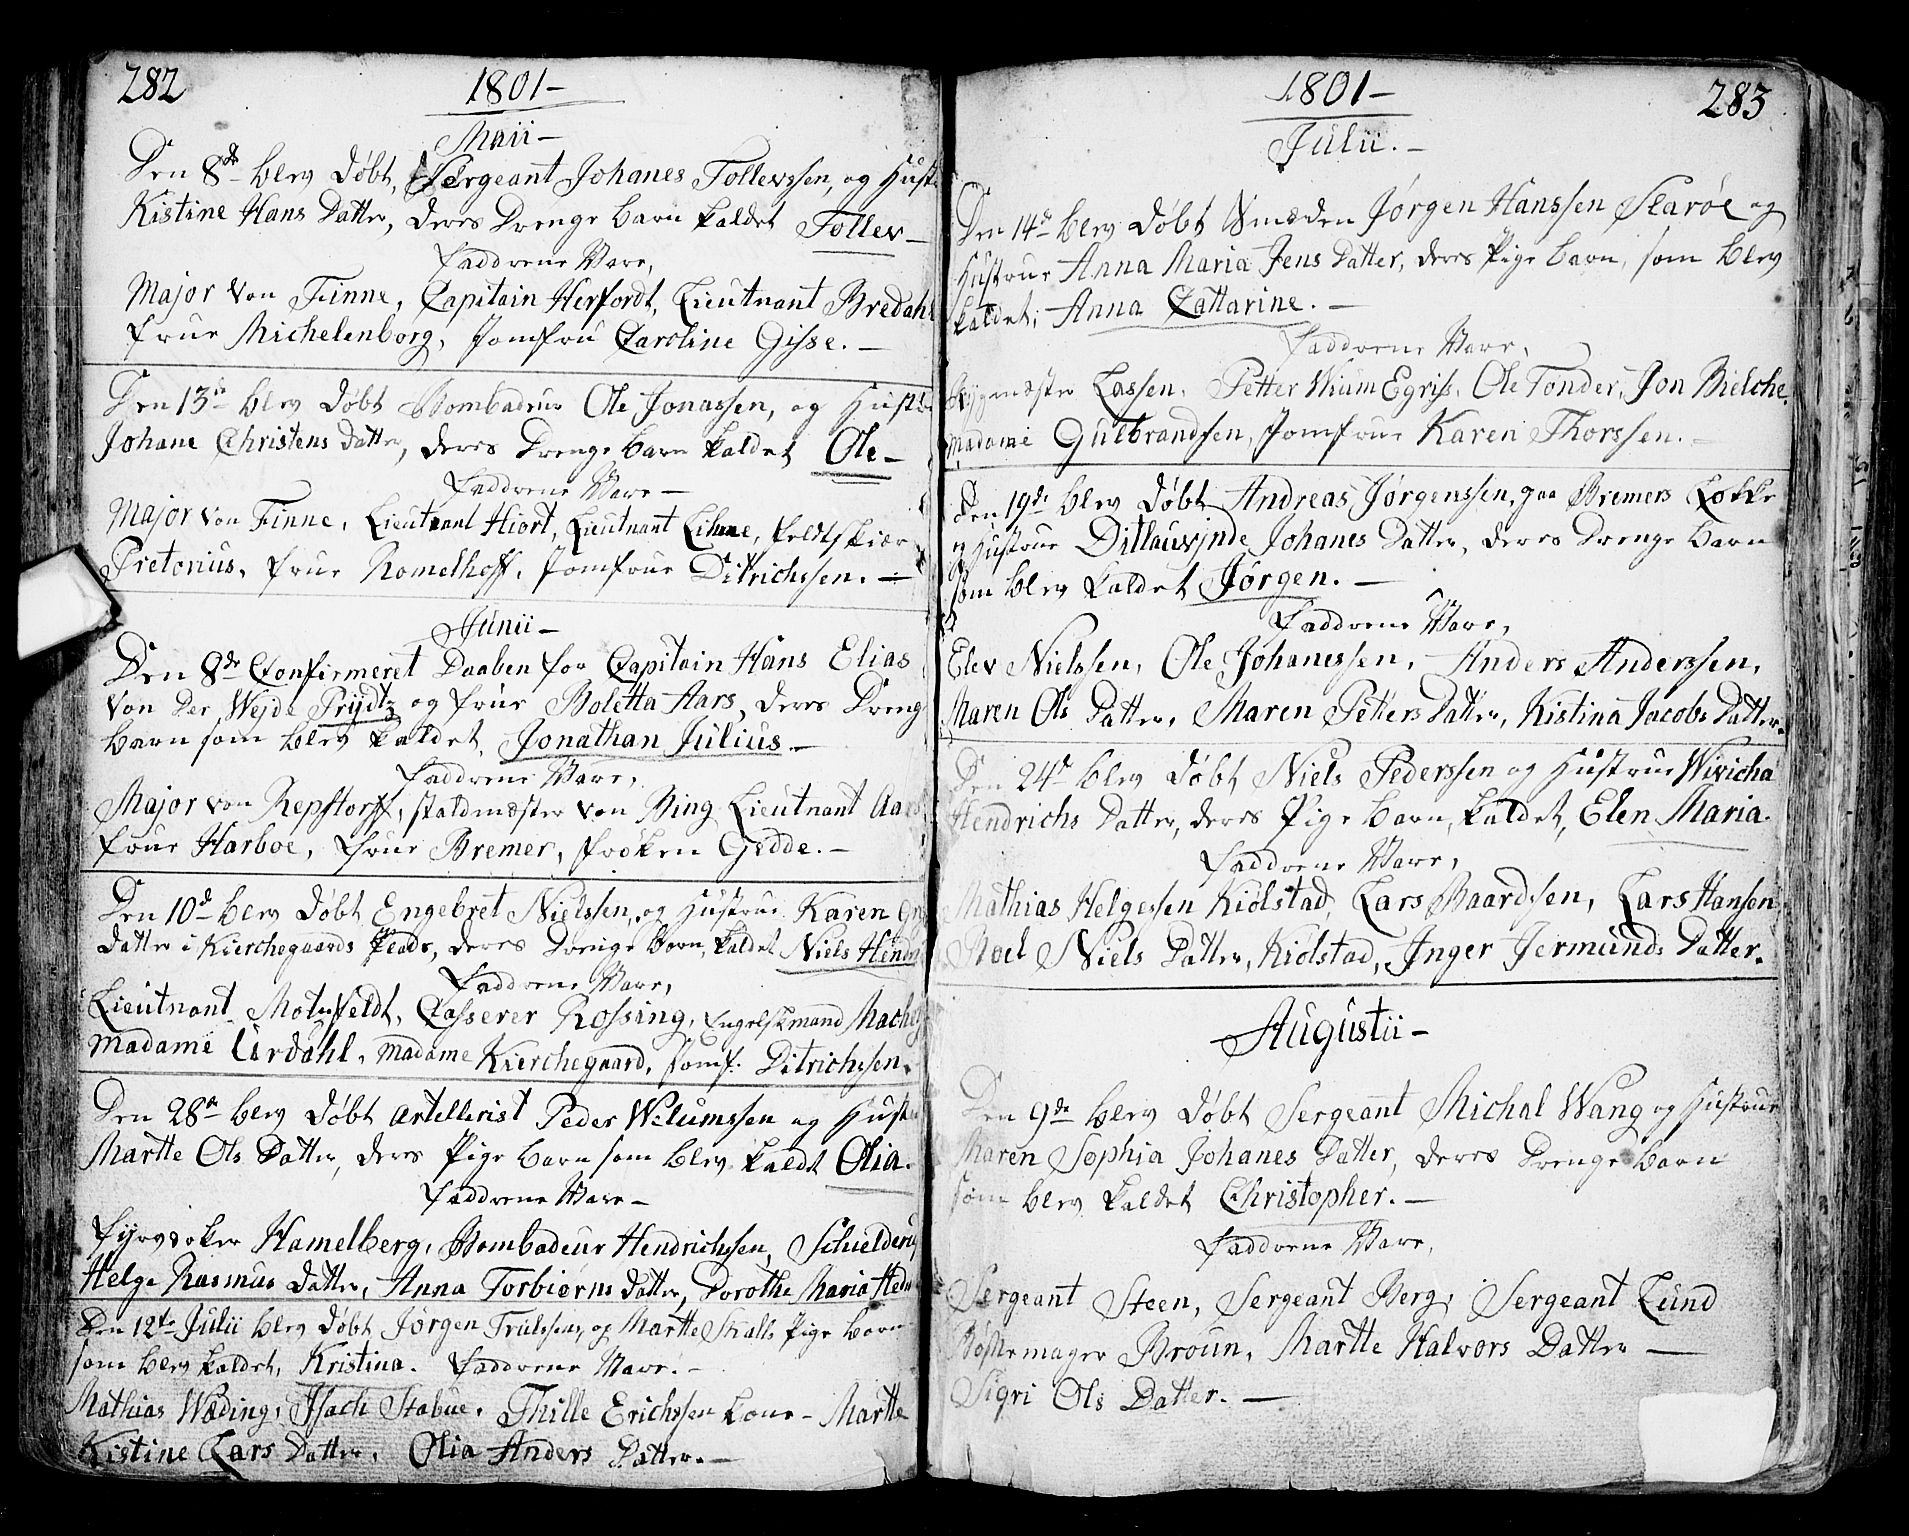 282
1801 –
Maii –
Den 8de blev døbt, Sergeant Johanes Tollevssen, og Hust
Kistine Hans Datter, deres Drenge barn kaldet Tollev –
Faddrene Vare,
Major von Finne, Capitain Herfordt, Lieutnant Bredahl
frue Michelenborg, Jomfru Caroline Gisse. –
Den 13de blev døbt Bombadeur Ole Jonassen, og Hust
Johane Christens Datter, deres Drenge barn kaldet Ole –
Faddrene Vare –
Major von Finne, Lieutnant Hiort, Lieutnant, feldtskiær
Pretorius, frue Romelhoff, Jomfrue Ditrichssen. –
Junii –
Den 8de Confirmeret Daaben for Capitain Hans Elias
von der Wejde Prydtz og frue Boletta Aars, deres Dreng
barn som blev kaldet, Jonathan Julius –
Faddrene Vare,
Major von Repstorff, staldmæster von Bing Lieutnant Aars
frue Harboe, frue Bremer, frøken Gedde. –
Den 10d blev døbt Engebret Nielssen, og Hustrue Karen
Datter i Kierchegaards Plads, deres Drenge barn, kaldet Niels Henri
Faddrene Vare,
Lieutnant Motzfeldt, Casserer Rossing, Engelskmand
Madame Urdahl, Madame Kierchegaard, Jomf: Ditrichssen.
Den 28de blev døbt Artellerist Peder Wilumssen og Hust
Martte Ols Datter, deres Pige barn som blev kaldt Olia.
Faddrene Vare –
fyrværker Hamelberg, Bombadeur Hendrichssen, Schielderup
Helge Rasmus Datter, Anna Torbiørns Datter, Dorothe Maria
Den 12te Julii blev døbt, Jørgen Trulssens, og Martte Skalls Pige barn
som blev kaldet, Kristina. Faddrene Vare. –
Mathias Wæding, Isach Stabue, Thille Erichssen kone – Martte
Kistine Lars Datter, Olia Anders Datter. –
1801 –
283
Julii. –
Den 14de blev døbt Smeden Jørgen Hanssen Skarøe og
Hustrue Anna Maria Jens Datter, deres Pige barn, som blev
kaldet, Anna Cattarine. –
Faddrene Vare,
Lassen, Petter Wium Egriss, Ole Tonder, Jon Bielche,
Madame Gulbrandsen, Jomfrue Karen Thorssen. –
Den 19de blev døbt Andreas Jørgenssen, paa Bremers Løkke
og Hustrue Ditlauvjnde Johanes Datter, deres Drenge barn
som blev kaldet Jørgen. –
Faddrene Vare,
Elev Nielssen, Ole Johanessen, Anders Anderssen,
Maren Ols Datter, Maren Petters Datter, Kistina Jacobs Datter.
Den 24d blev døbt Niels Pederssen og Hustrue Wivicha
Hendrichs Datter, deres Pige barn, kaldet, Elen Maria.
Faddrene Vare,
Mathias Helgessen Kiølstad, Lars Baardssen, Lars Hansen
Roel Niels Datter, Kiølstad, Inger Jermunds Datter.
Augustii –
Den 9de blev døbt Sergeant Michal Wang og Hustrue
Maren Sophia Johanes Datter, deres Drenge barn
som blev kaldet Christopher. –
Faddrene Vare,
Sergeant Steen, Sergeant Berg, Sergeant Lund
Bøssemager Broun, Martte Halvors Datter –
Sigri Ols Datter. –